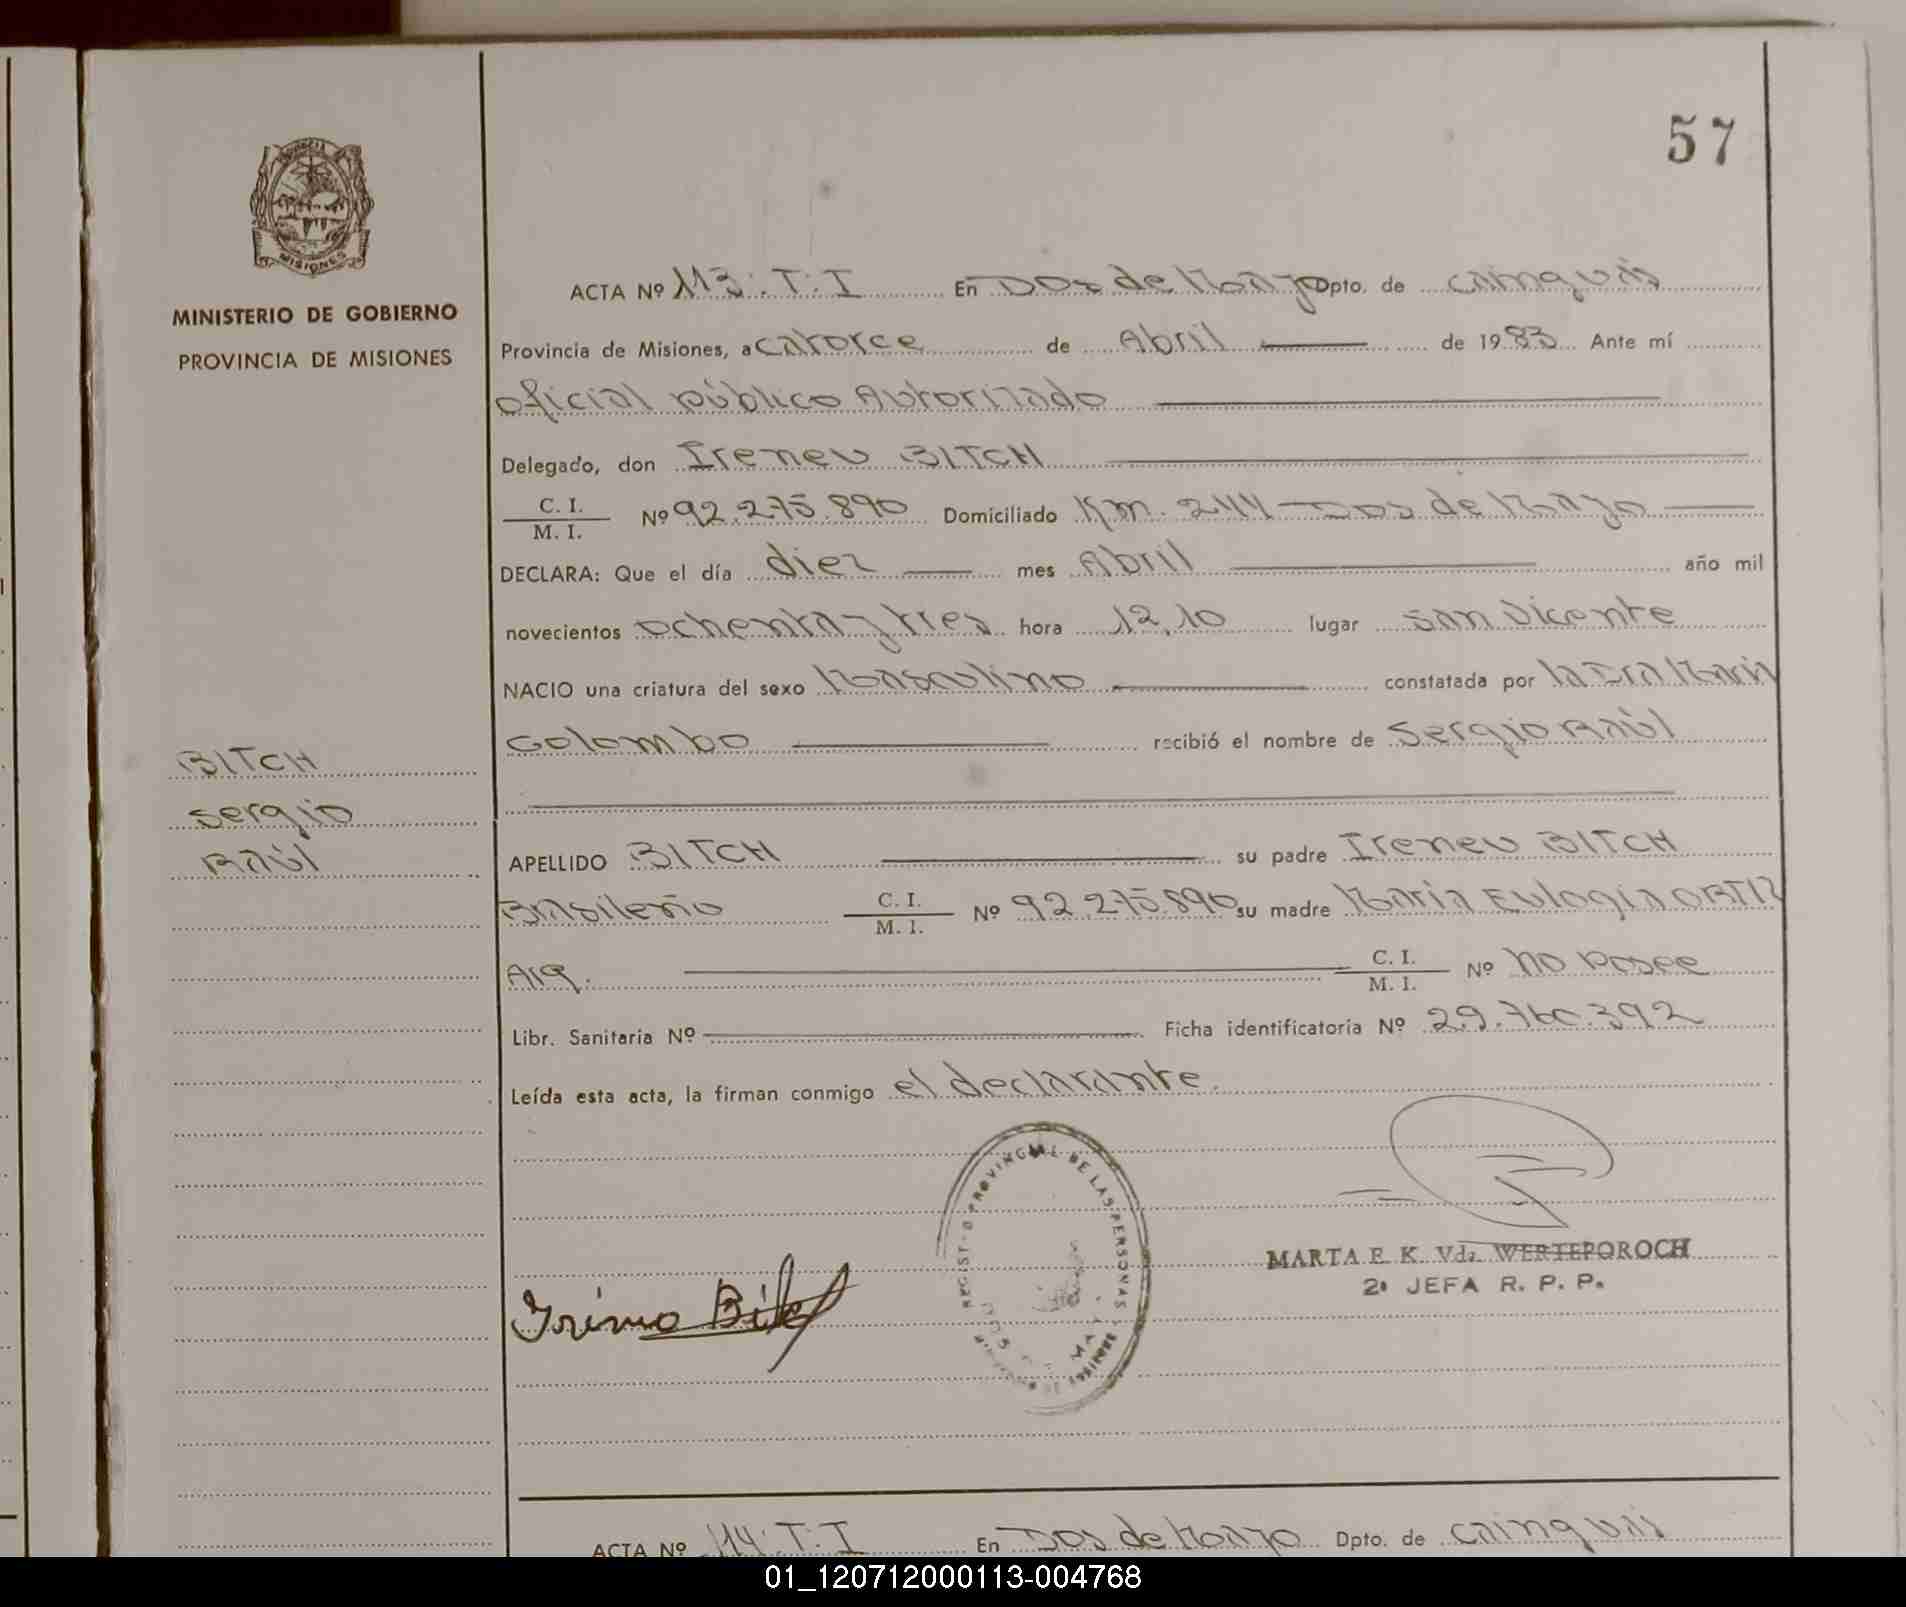 57
PROVINCIA
MISIONES
MINISTERIO DE GOBIERNO
PROVINCIA DE MISIONES
ACTA Nº 113.T.I En Dos de Mayo Dpto. de Cainguás
Provincia de Misiones, a catorce de Abril de 1983 Ante mí
oficial público Autorizado
Delegado, don Ireneu BITCH
C. I.
M. I. Nº 92.275.890 Domiciliado Km. 244 - Dos de Mayo
DECLARA: Que el día diez mes Abril año mil
novecientos ochenta y tres hora 12,10 lugar San Vicente
NACIO una criatura del sexo Masculino constatada por la Dra Maria
Colombo recibió el nombre de Sergio Raúl
BITCH
Sergio
Raúl
APELLIDO BITCH su padre Ireneu BITCH
Brasileño C. I. M. I. Nº 92.275.890 su madre Maria Eulogia ORTIZ
Arg. C. I. M. I. Nº no posee
Libr. Sanitaria Nº Ficha identificatoria Nº 29.760.392
Leída esta acta, la firman conmigo el declarante.
PROVINCIAL DE LAS PERSONAS
MARTA E. K. Vda. WERTEPOROCH
2ª JEFA R. P. P.
ACTA Nº 114.T.I En Dos de Mayo Dpto. de Cainguás
01_120712000113-004768